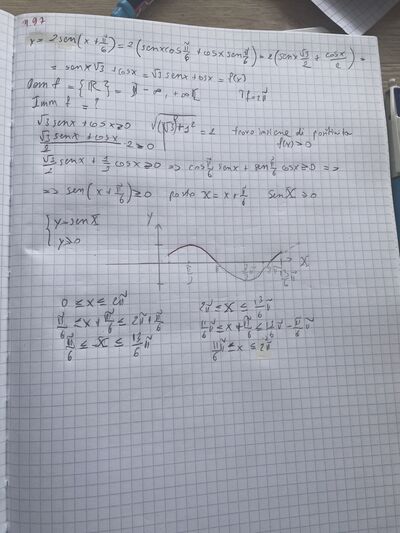 n.97
y = 2sen(x + π/6) = 2(senx cos π/6 + cosx sen π/6) = 2(senx √3/2 + cosx/2) =
= senx √3 + cosx = √3 senx + cosx = f(x)
Dom f = {ℝ} = ]-∞, +∞[ Tf = 2π
Imm f = ?
√3 senx + cosx ≥ 0 √(√3)² + 1² = 2 trovo insieme di positività
f(x) > 0
√3 senx + cosx / 2 · 2 ≥ 0
√3/2 senx + 1/2 cosx ≥ 0 => cos π/6 senx + sen π/6 cosx ≥ 0 =>
=> sen(x + π/6) ≥ 0 posto X = x + π/6 sen X ≥ 0
{ y = sen X
y ≥ 0
Y
X
π
2π
13/6 π
0 ≤ x ≤ 2π
π/6 ≤ x + π/6 ≤ 2π + π/6
π/6 ≤ X ≤ 13/6 π
2π ≤ X ≤ 13/6 π
11/6 π ≤ x ≤ 2π